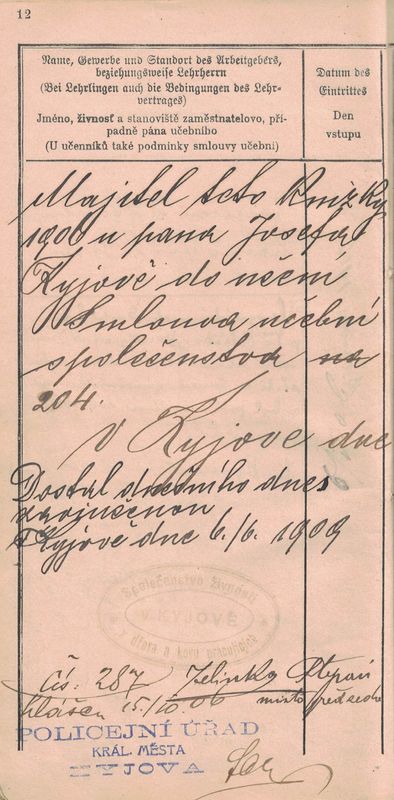 12
Name, Gewerbe und Standort des Arbeitgebers,
beziehungsweise Lehrherrn
(Bei Lehrlingen auch die Bedingungen des Lehr-
vertrages)
Jméno, živnost a stanoviště zaměstnatelovo, pří-
padně pána učebního
(U učenníků také podmínky smlouvy učební)
Datum des
Eintrittes
Den
vstupu
Majitel této knížky
1906 u pana Josefa
Kyjově do učení
Smlouva učební
společenstva na
204.
V Kyjově dne
Dostal dnešního dne
Kyjově dne 6./6. 1909
Společenstvo živností
V KYJOVĚ
z dřeva a kovu pracujících
čís: 287 Zelinka Štěpán
hlášen 15/10 06 místo předseda
POLICEJNÍ ÚŘAD
KRÁL. MĚSTA
KYJOVA